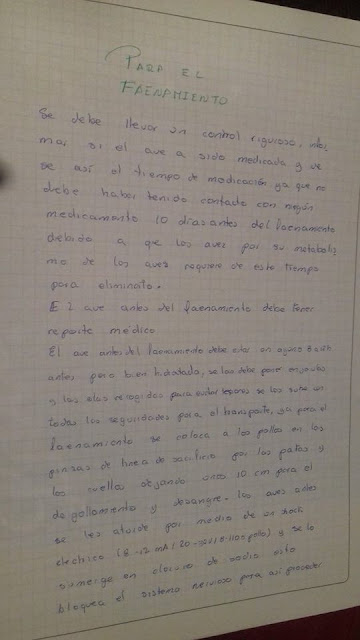 PARA EL
FAENAMIENTO
Se debe llevar un control riguroso, infor
mar si el ave a sido medicada y ve
se así el tiempo de medicación ya que no
debe haber tenido contado con negún
medicamento 10 días antes del faenamiento
debido a qe las aves por su metabolis
mo de las aves requiere de este tiempo
para eliminarlo.
El ave antes del faenamiento debe tener
reporte médico
El ave antes del faenamiento debe estar en ayuno
antes pero bien hidratada, se las debe poner en jaulas
y las alas recogidas para evitar se los sube
todas las seguridades para el transporte, ya para el
faenamiento se coloca a los pollos en las
pinzas de linea de sacrificio por las patas y
los cuellos dejando unos 10 cm para el
degollamiento y desangre. las aves antes
se les aturde por medio de un shock
electrico (8-12 mA / pollo) y se lo
sumerge en cloruro de sodio esto
bloquea el sistema nervioso para asi proceder